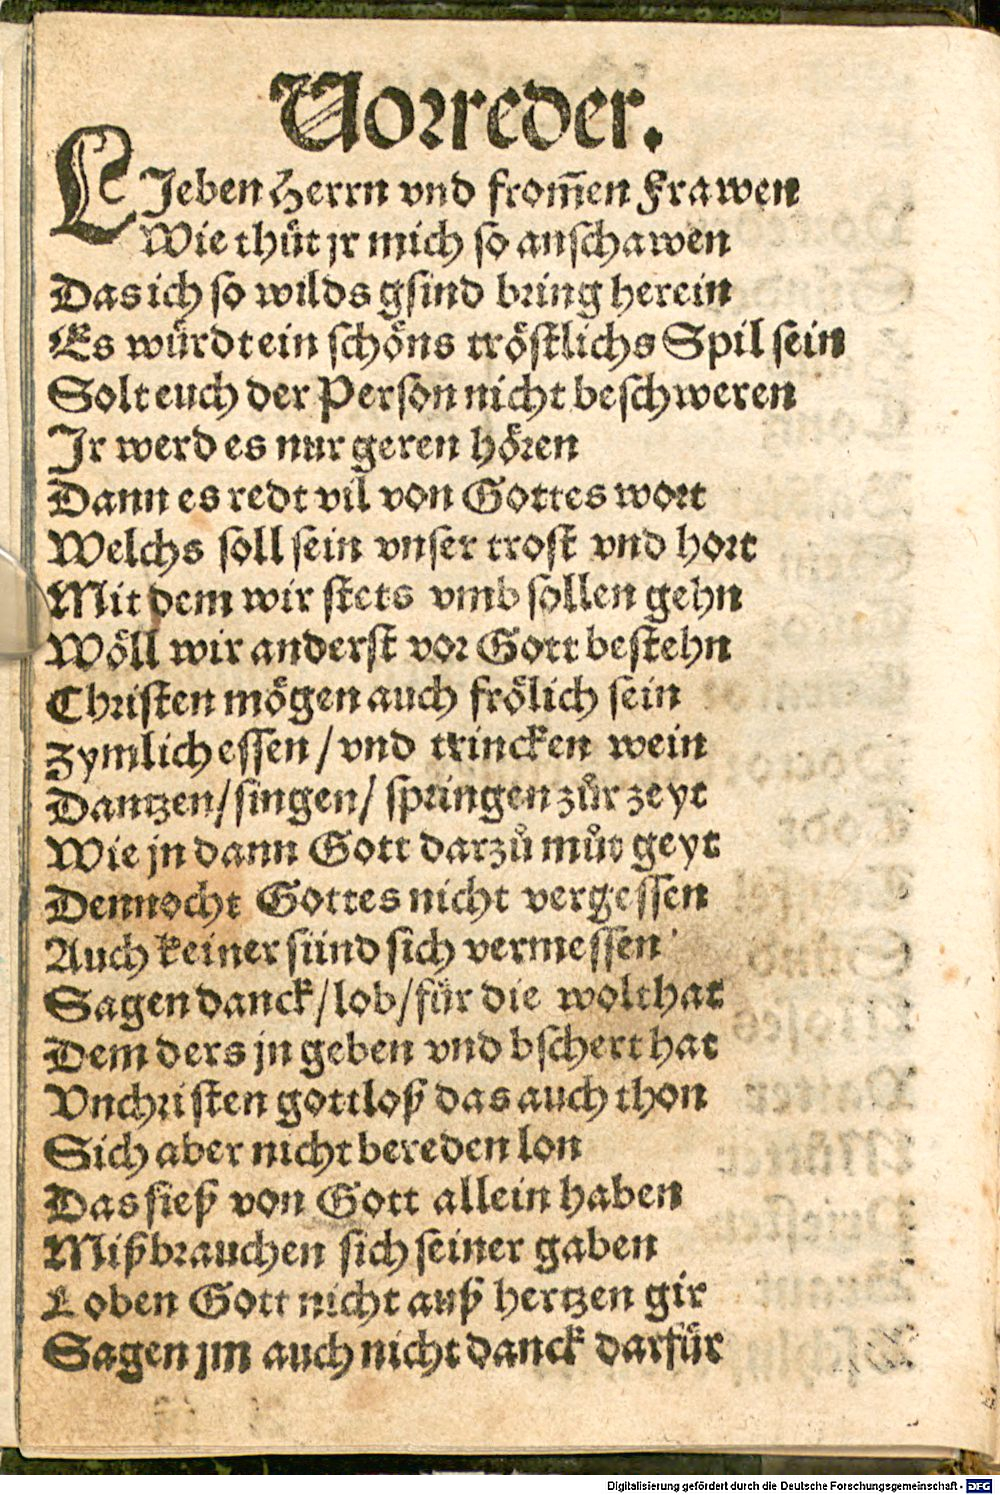 Vorreder.
LIeben Herrn vnd from̃en Frawen
Wie thuͤt jr mich so anschawen
Das ich so wilds gsind bring herein
Es wuͤrdt ein schoͤns troͤstlichs Spil sein
Solt euch der Person nicht beschweren
Jr werd es nur geren hoͤren
Dann es redt vil von Gottes wort
Welchs soll sein vnser trost vnd hort
Mit dem wir stets vmb sollen gehn
Woͤll wir anderst vor Gott bestehn
Christen moͤgen auch froͤlich sein
Zymlich essen / vnd trincken wein
Dantzen / singen / springen zuͤr zeyt
Wie jn dann Gott darzuͦ muͦt geyt
Dennocht Gottes nicht vergessen
Auch keiner suͤnd sich vermessen
Sagen danck / lob / fuͤr die wolthat
Dem ders jn geben vnd bschert hat
Vnchristen gottloß das auch thon
Sich aber nicht bereden lon
Das sieß von Gott allein haben
Mißbrauchen sich seiner gaben
Loben Gott nicht auß hertzen gir
Sagen jm auch nicht danck darfuͤr
Digitalisierung gefördert durch die Deutsche Forschungsgemeinschaft - DFG